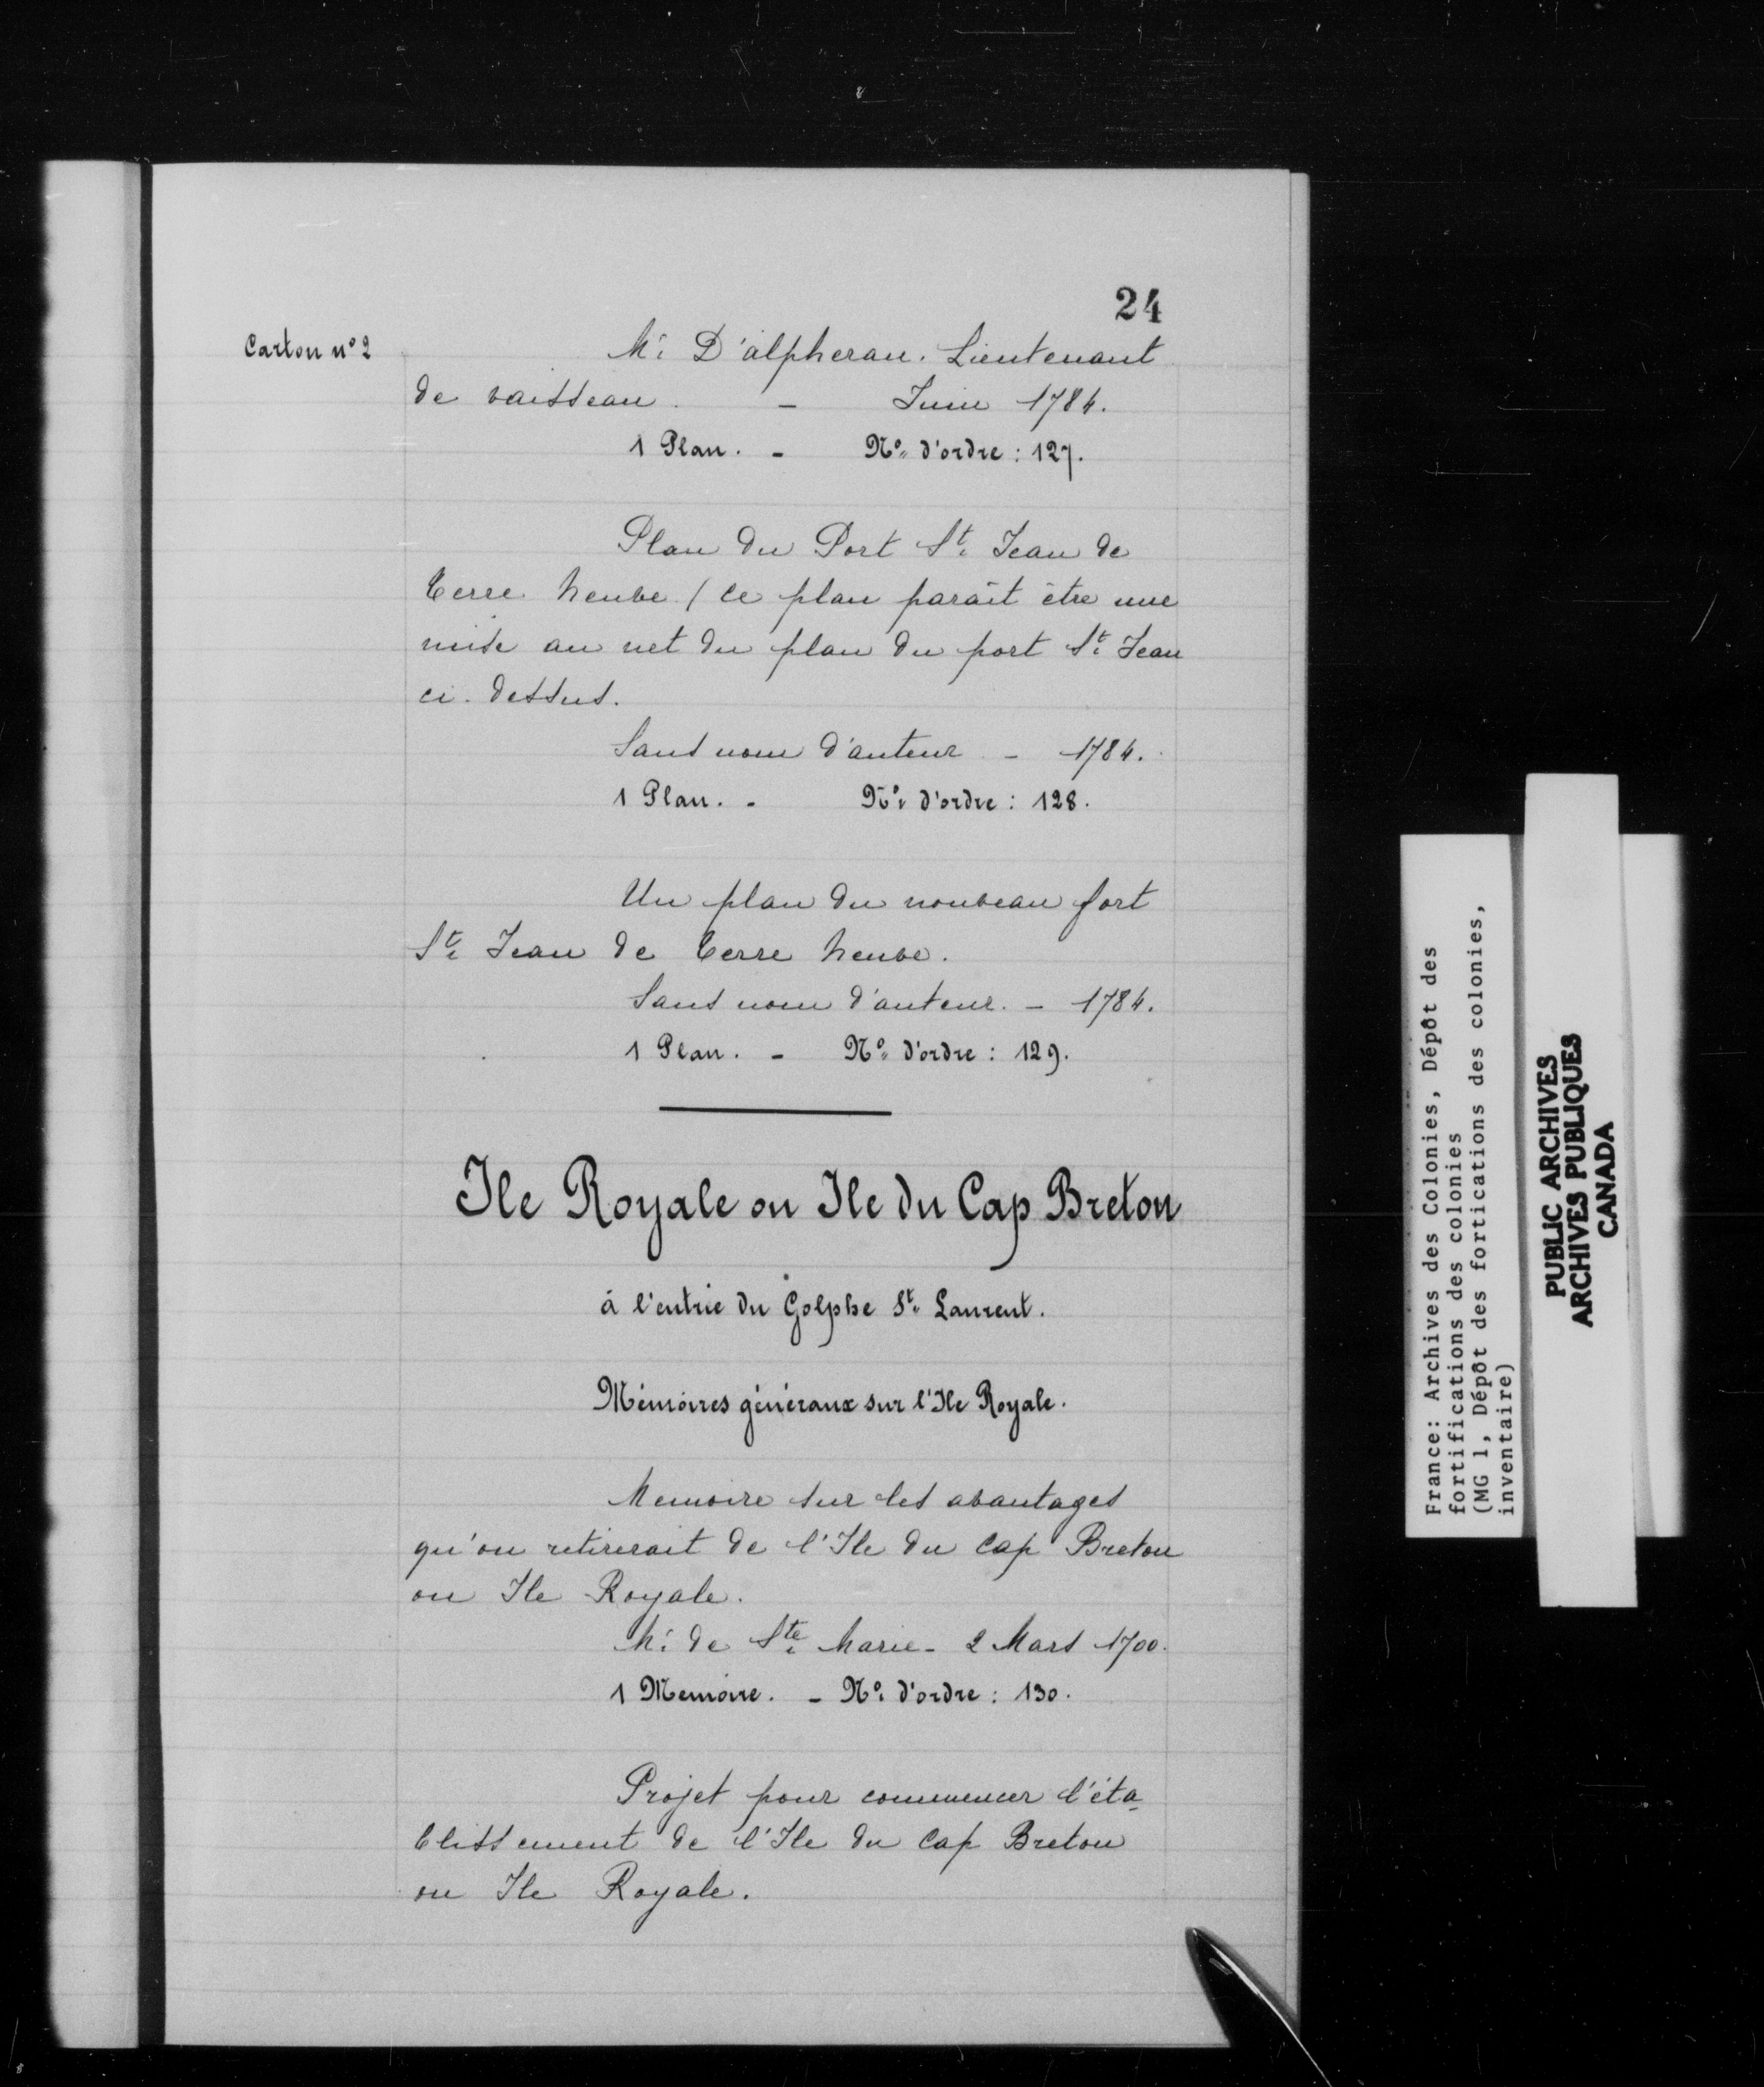 24
Carton n° 2
Mr. D'alpheran. Lieutenant
de vaisseau. - Juin 1784.
1 Plan. - No. d'ordre : 127.
Plan du Port St. Jean de
Terre Neuve / Ce plan parait être une
mise au net du plan du port St. Jean
ci-dessus.
Sans nom d'auteur - 1784.
1 Plan. - No. d'ordre : 128.
Un plan du nouveau fort
St. Jean de Terre Neuve.
Sans nom d'auteur. - 1784.
1 Plan. - No. d'ordre : 129.
Ile Royale ou Ile du Cap Breton
à l'entrée du Golphe St. Laurent.
Mémoires généraux sur l'Ile Royale.
Memoire sur les avantages
qu'on retirerait de l'Ile du Cap Breton
ou Ile Royale.
Mr. de Ste. Marie - 2 Mars 1700.
1 Memoire. - No. d'ordre : 130.
Projet pour commencer l'éta-
blissement de l'Ile du Cap Breton
ou Ile Royale.
France: Archives des Colonies, Dépôt des
fortifications des colonies
(MG 1, Dépôt des fortications des colonies,
inventaire)
PUBLIC ARCHIVES
ARCHIVES PUBLIQUES
CANADA